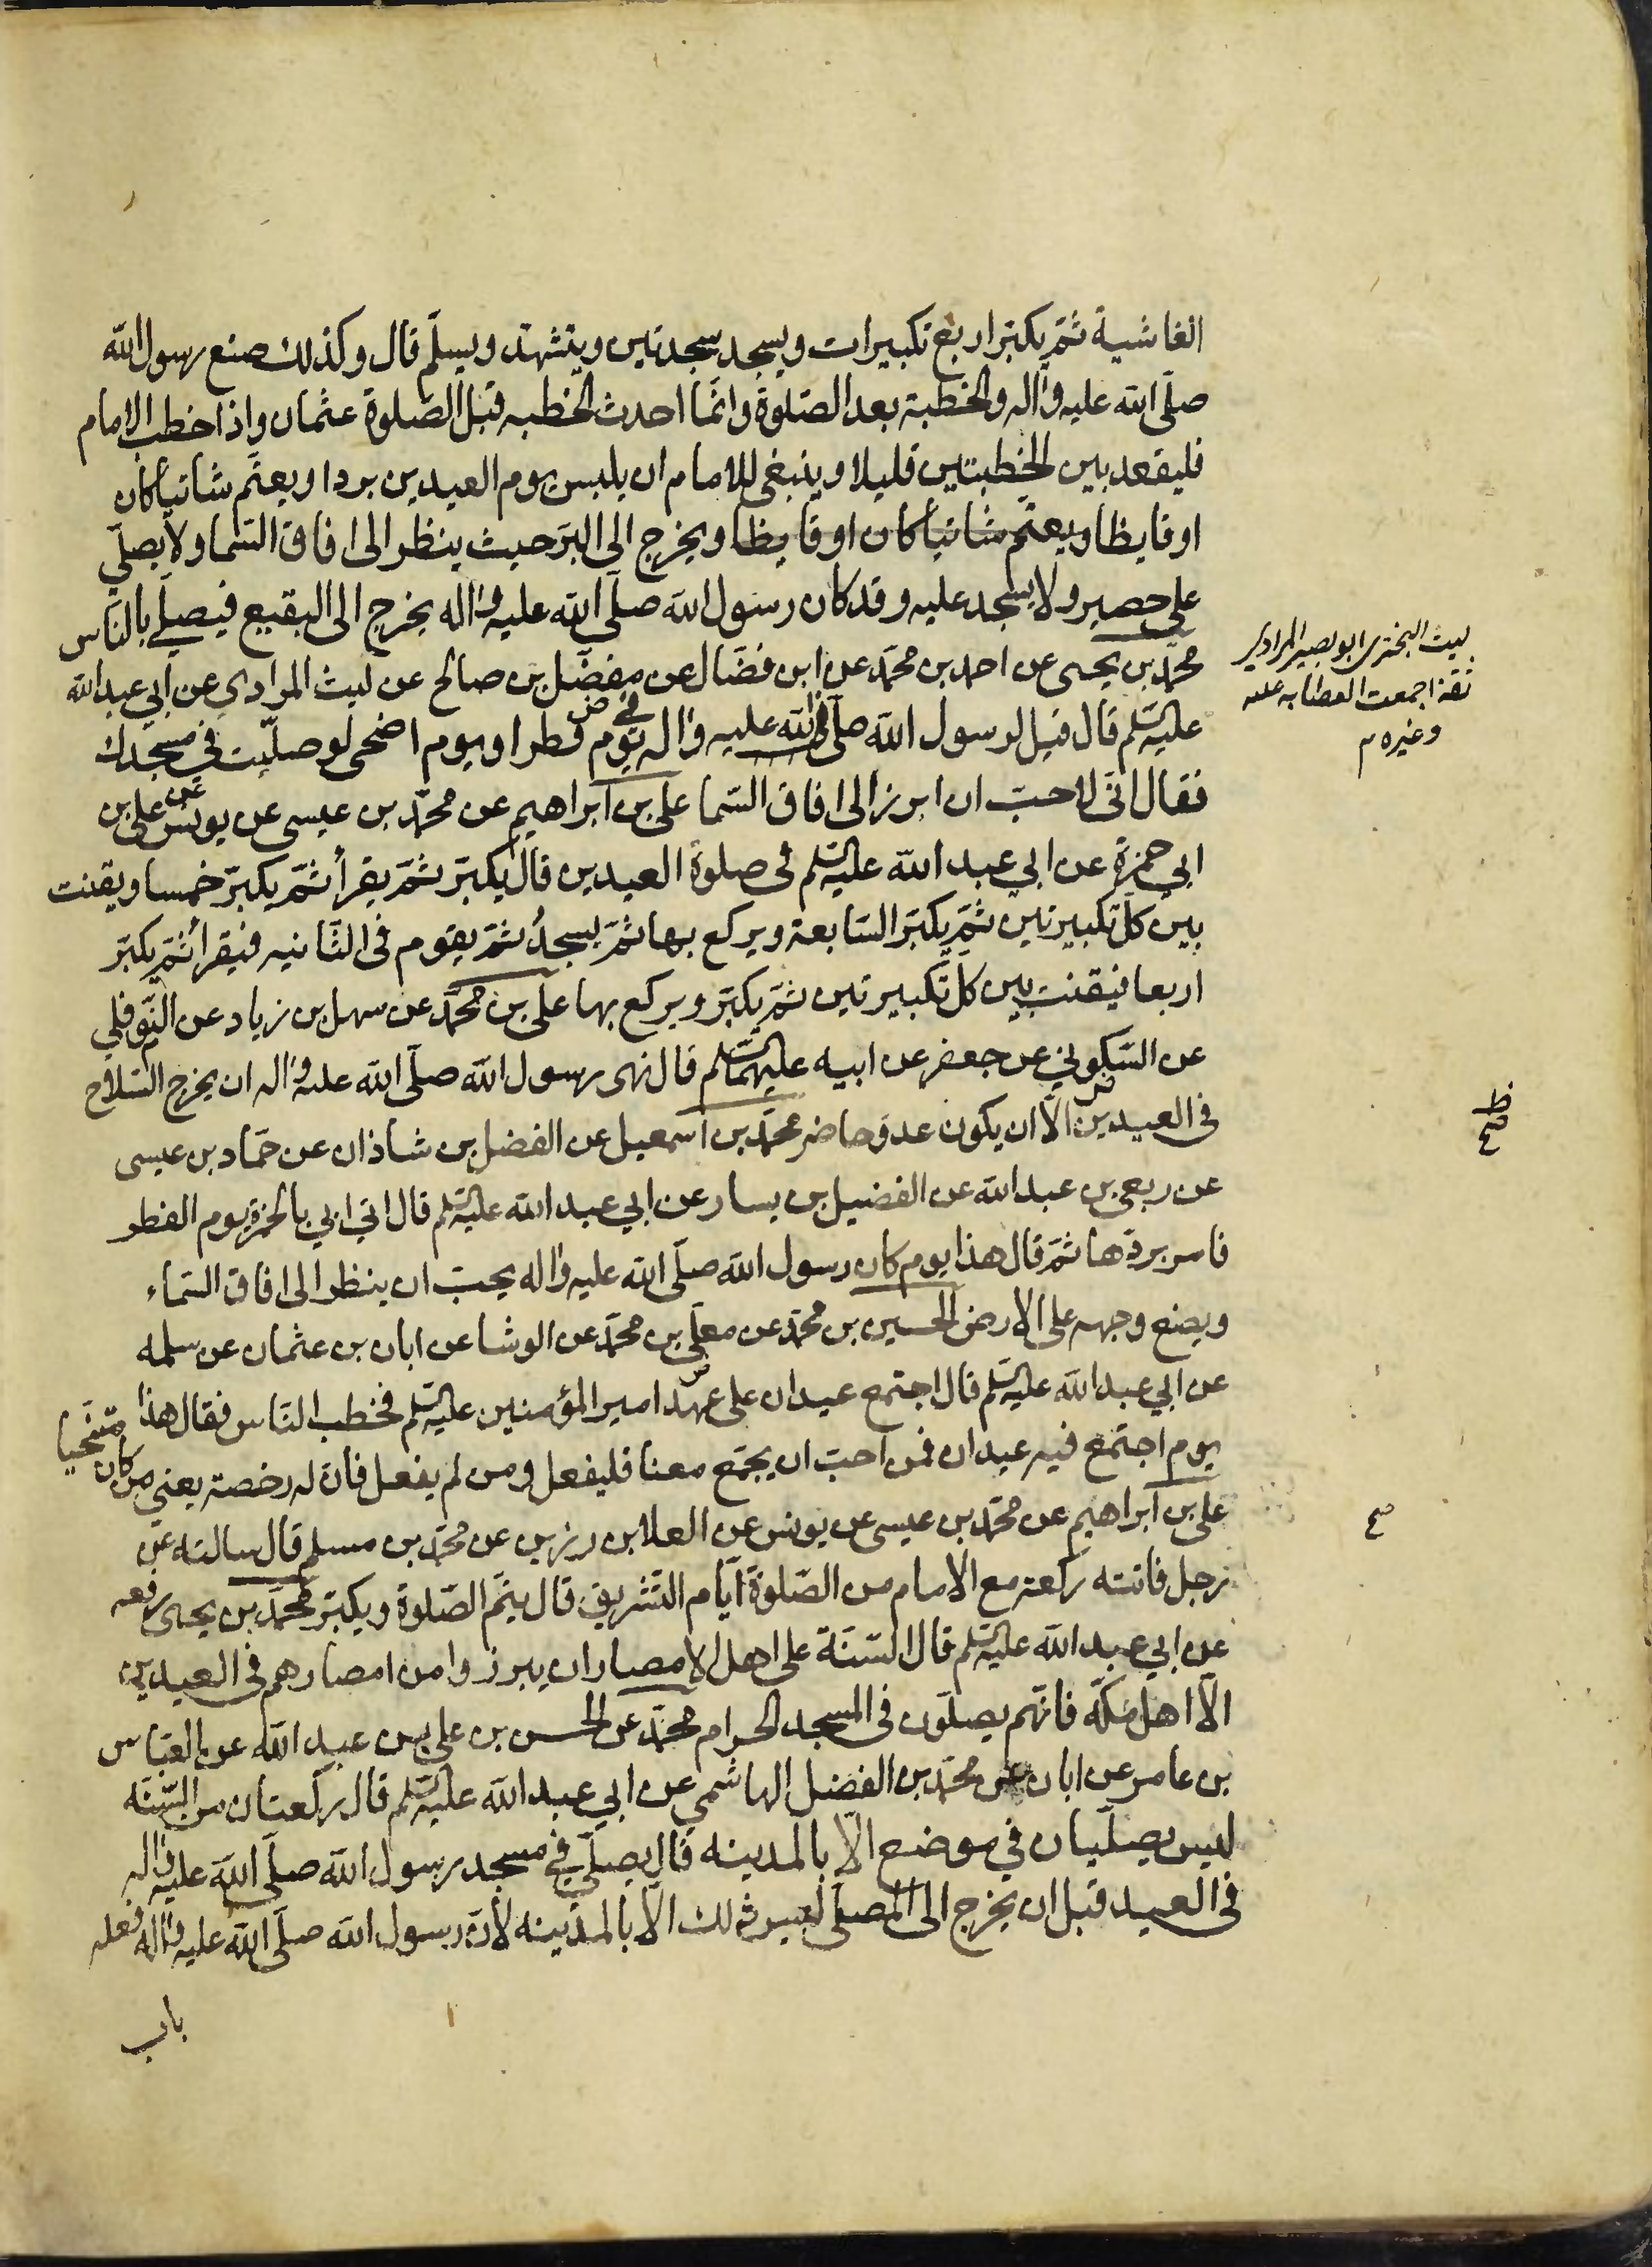 الغاشية ثمّ يكبّر اربع تكبيرات ويسجد سجدتين ويتشهّد ويسلّم قال وكذلك صنع رسول الله
صلّى الله عليه وآله والخطبة بعد الصّلوة وانّما احدث الخطبه قبل الصّلوة عثمان واذا خطب الامام
فليقعد بين الخطبتين قليلا وينبغى للامام ان يلبس يوم العيدين بردا ويعتمّ شاتيا كان
او قايظا ويعتمّ شاتيا كان او قايظا ويخرج الى البرّ حيث ينظر الى افاق السّما ولا يصلّي
على حصير ولا يسجد عليه وقد كان رسول الله صلّى الله عليه وآله يخرج الى البقيع فيصلّي بالنّاس
محمّد بن يحيى عن احمد بن محمّد عن ابن فضّال عن مفضّل بن صالح عن ليث المرادي عن ابي عبد الله
عليه السّلم قال قيل لرسول الله صلّى الله عليه وآله يوم فطر او يوم اضحى لو صلّيت في مسجدك
فقال انّى لاحبّ ان ابرز الى افاق السّما علي بن ابراهيم عن محمّد بن عيسى عن يونس عن علي بن
ابي حمزة عن ابي عبد الله عليه السّلم فى صلوة العيدين قال يكبّر ثمّ يقرأ ثمّ يكبّر خمسا ويقنت
بين كلّ تكبيرتين ثمّ يكبّر السّابعة ويركع بها ثمّ يسجدُ ثمّ يقوم فى الثّانيه فيقرأ ثمّ يكبّر
اربعا فيقنت بين كلّ تكبيرتين ثمّ يكبّر ويركع بها علي بن محمّد عن سهل بن زياد عن النّوفلي
عن السّكوني عن جعفر عن ابيه عليهما السّلم قال نهى رسول الله صلّى الله عليه وآله ان يخرج السّلاح
فى العيدين الّا ان يكون عدوّ حاضر محمّد بن اسمعيل عن الفضل بن شاذان عن حمّاد بن عيسى
عن ربعي بن عبد الله عن الفضيل بن يسار عن ابي عبد الله عليه السّلم قال اتي ابي بالخمرة يوم الفطر
فامر بردّها ثمّ قال هذا يوم كان رسول الله صلّى الله عليه وآله يحبّ ان ينظر الى افاق السّماء
ويضع وجهه على الارض الحسين بن محمّد عن معلّى بن محمّد عن الوشا عن ابان بن عثمان عن سلمه
عن ابي عبد الله عليه السّلم قال اجتمع عيدان على عهد امير المؤمنين عليه السّلم فخطب النّاس فقال هذا
يوم اجتمع فيه عيدان فمن احبّ ان يجمّع معنا فليفعل ومن لم يفعل فانّ له رخصة يعني من كان متنحّيا
علي بن ابراهيم عن محمّد بن عيسى عن يونس عن العلا بن رزين عن محمّد بن مسلم قال سالته عن
رجل فاتته ركعة مع الامام من الصّلوة ايّام التّشريق قال يتمّ الصّلوة ويكبّر محمّد بن يحيى رفعه
عن ابي عبد الله عليه السّلم قال السّنّة على اهل الامصار ان يبرزوا من امصارهم فى العيدين
الّا اهل مكّه فانّهم يصلّون فى المسجد الحرام محمّد عن الحسن بن علي بن عبد الله عن العبّاس
بن عامر عن ابان عن محمّد بن الفضل الهاشمي عن ابي عبد الله عليه السّلم قال ركعتان من السّنّه
ليس يصلّيان في موضع الّا بالمدينه قال يصلّي في مسجد رسول الله صلّى الله عليه وآله
فى العيد قبل ان يخرج الى المصلّى ليس ذلك الّا بالمدينه لأنّ رسول الله صلّى الله عليه وآله فعله
باب
ليث البخترى ابو بصير المرادى
ثقة اجمعت العصابه عليه
وغيره م